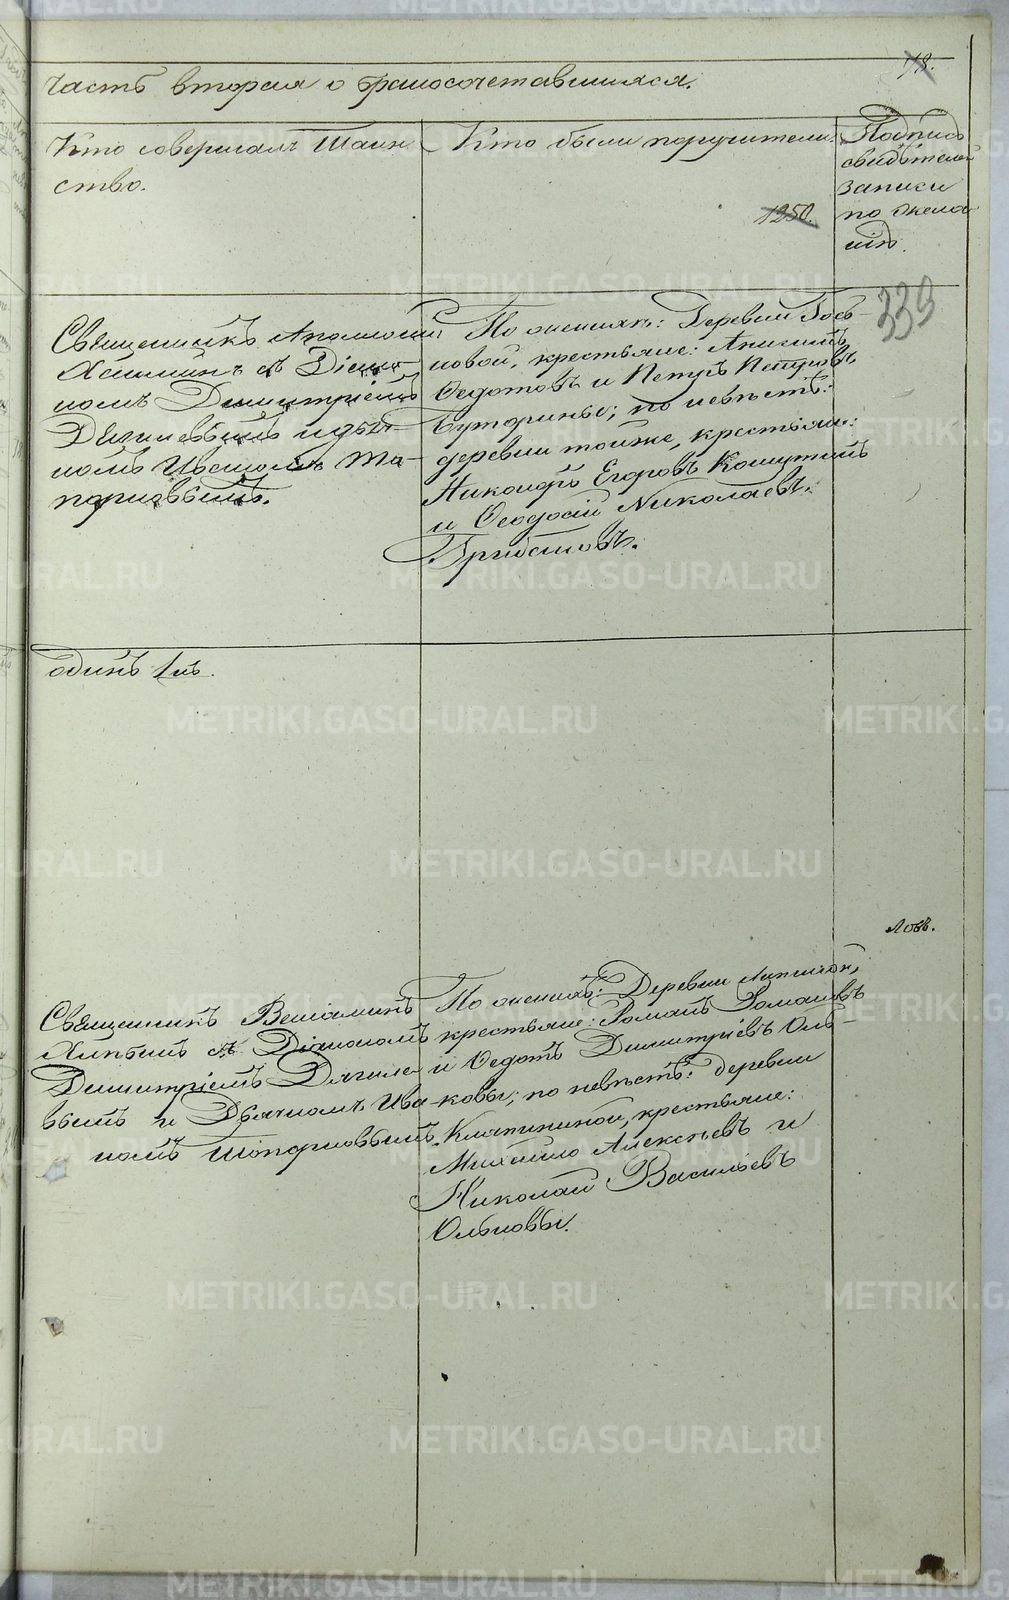 48.
Часть вторая о бракосочетавшихся.
Кто совершалъ Таин
ство.
Кто были поручители.
1250.
Подпись
свидѣтелей
записи
по жела
нію.
339
Священникъ
съ Діако-
номъ Димитріемъ
Дягилевымъ и дьяч-
комъ Иваномъ То-
порковымъ.
По женихѣ: Деревни
новой, крестьяне:
Ѳедотовъ и Петръ Петровъ
Буторины; по невѣстѣ:
деревни тойже, крестьяне:
Никонъ Егоровъ
и Ѳеодосій Николаевъ
одинъ 1мъ.
Священникъ Веніаминъ
съ Діакономъ
Димитріемъ Дягиле
вымъ и Дьячкомъ Ива
номъ Топорковымъ.
По женихѣ: Деревни
крестьяне: Романъ Романовъ
и Ѳедотъ Димитріевъ Оль-
ковы; по невѣстѣ: деревни
Клапининой, крестьяне:
Михайло Алексѣевъ и
Николай Васильевъ
Ольковы.
METRIKI.GASO-URAL.RU